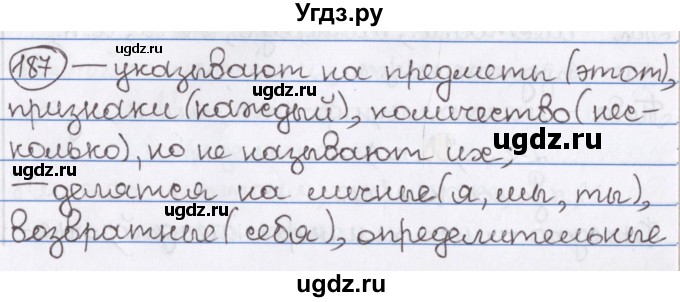 Угдз.ру
187 — указывают на предметы (этот),
признаки (каждый), количество (нес-
колько), но не называют их;
— делятся на личные (я, мы, ты),
возвратные (себя), определительные
ugdz.ru
ugdz.ru
ugdz.ru
ugdz.ru
ugdz.ru
ugdz.ru
ugdz.ru
ugdz.ru